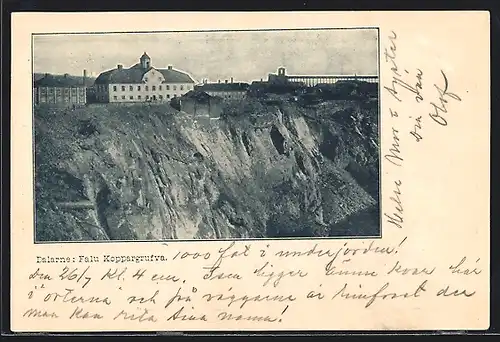 Dalarne: Falu Koppargrufva.
1000 fot i underjorden!
den 26/7 kl. 4 em. Isen ligger ännu kvar här
i orterna och på väggarne är rimfrost der
man kan rita sina namn!
Helsn Mor &
Din vän
Olof